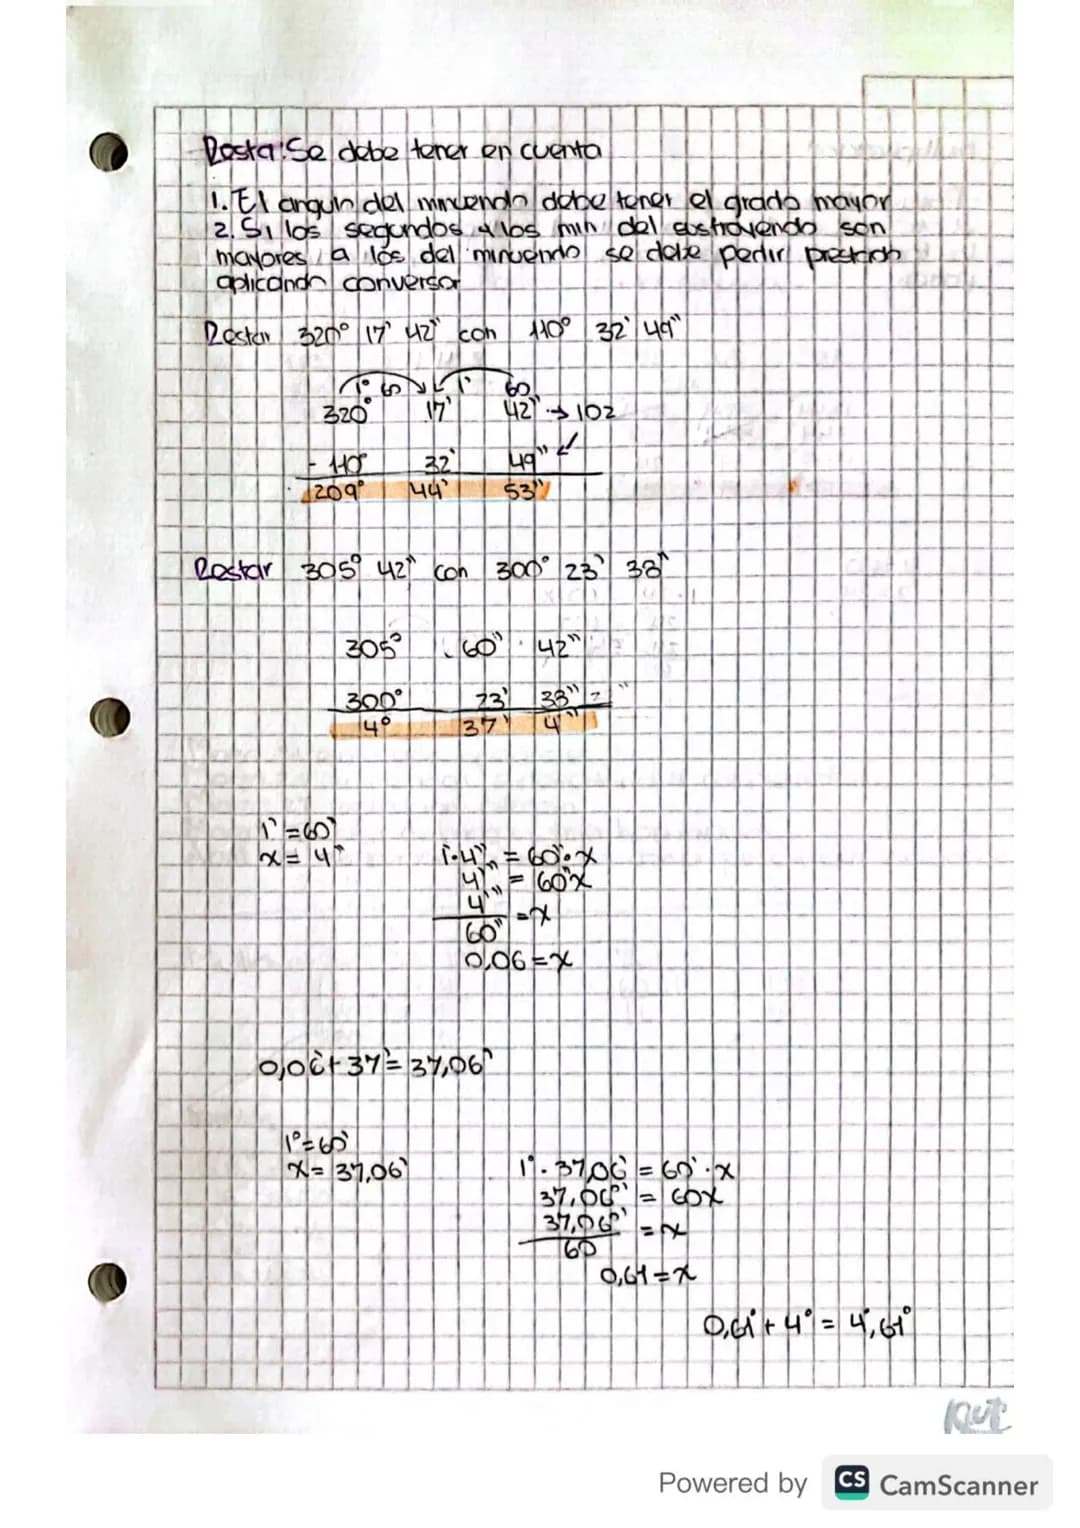 Resta: Se debe tener en cuenta
1. El angulo del minuendo debe tener el grado mayor
2. Si los segundos y los min del sustrayendo son
mayores a los del minuendo se debe pedir prestado
aplicando conversor
Restar 320° 17' 42" con 110° 32' 49"
1° 60 1' 60
320° 17' 42" → 102
- 110° 32' 49"
209° 44' 53"
Restar 305° 42" con 300° 23' 38"
305° 60" 42"
300° 23' 38"
4° 37' 4"
1' = 60"
x = 4"
1'·4" = 60"·x
4" = 60"x
4" = x
60"
0,06 = x
0,06 + 37' = 37,06'
1° = 60'
x = 37,06'
1°·37,06' = 60'·x
37,06' = 60x
37,06' = x
60
0,61 = x
0,61° + 4° = 4,61°
Powered by CS CamScanner